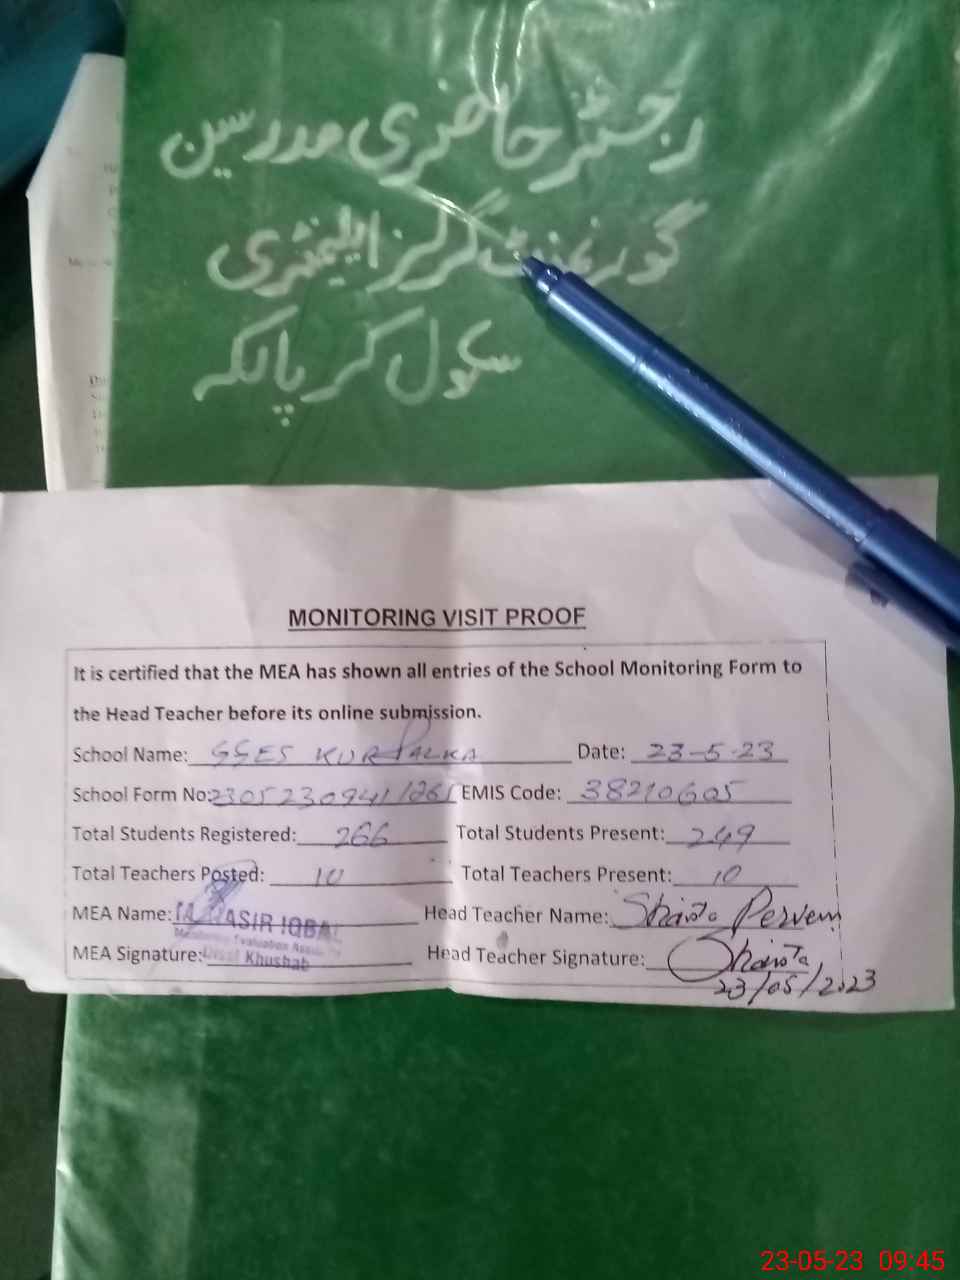 رجسٹر حاضری مدرسین
گورنمنٹ گرلز ایلیمنٹری
سکول کرپالکہ
MONITORING VISIT PROOF
It is certified that the MEA has shown all entries of the School Monitoring Form to
the Head Teacher before its online submission.
School Name: GGES KURPALKA Date: 23-5-23
School Form No: EMIS Code: 38210605
Total Students Registered: 266 Total Students Present: 249
Total Teachers Posted: 10 Total Teachers Present: 10
MEA Name: YASIR IQBAL Head Teacher Name: Shaista Perveen
Monitoring Evaluation
MEA Signature: Khushab Head Teacher Signature: Shaista
23/05/2023
23-05-23 09:45